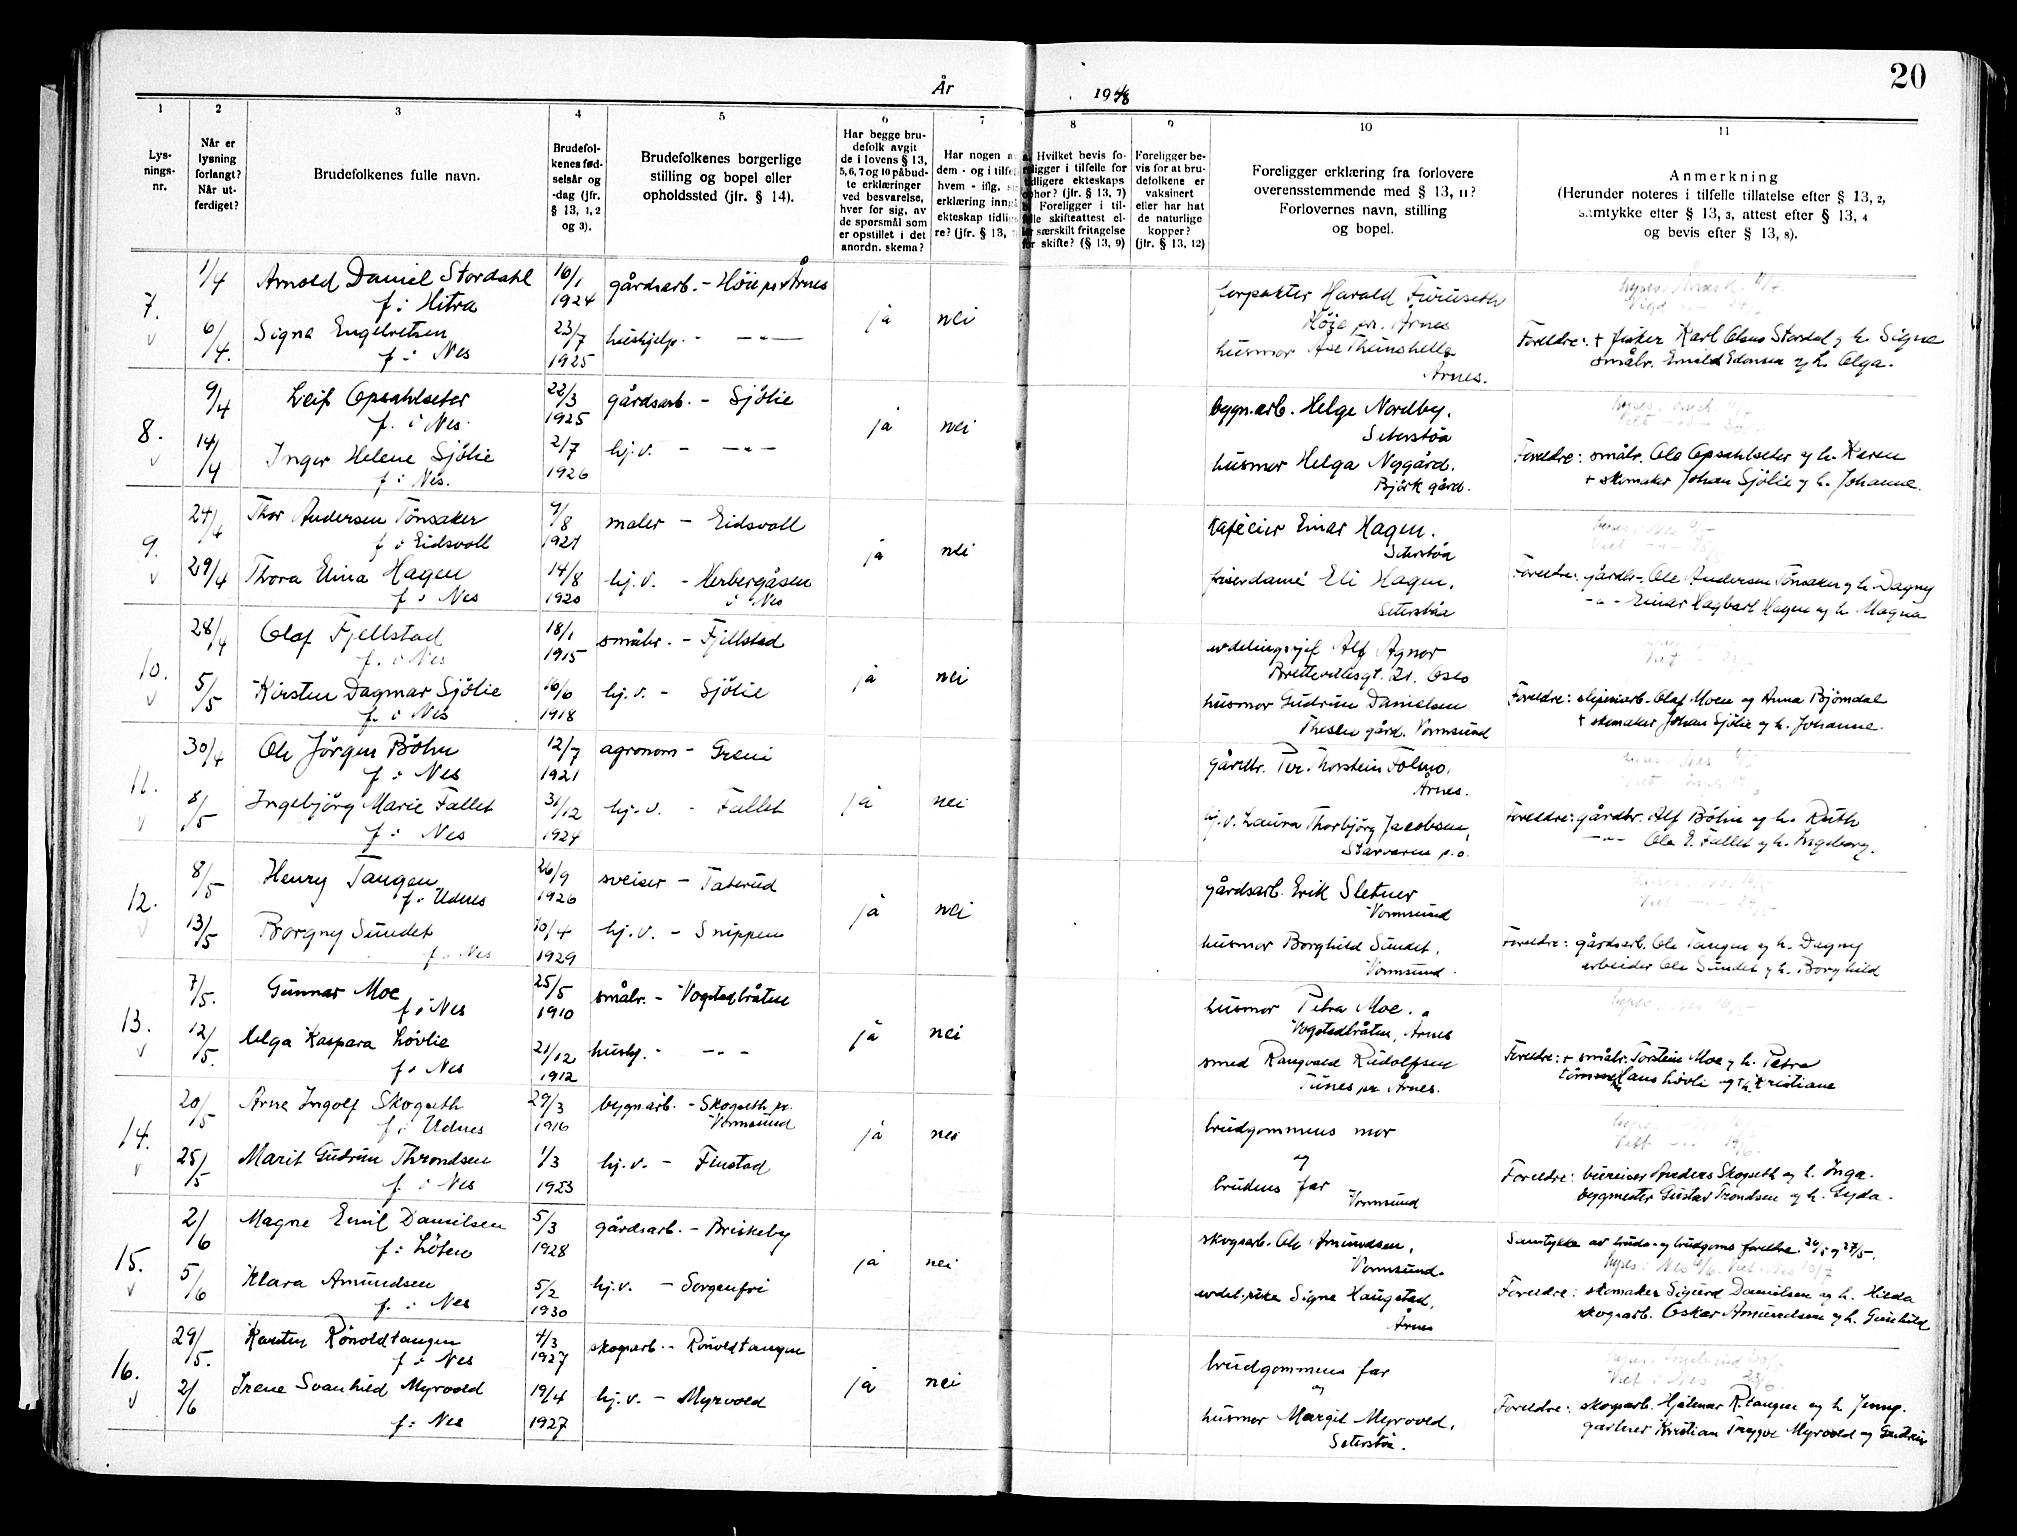 20
År 1948
1 2 3 4 5 6 7 8 9 10 11
Lys-
nings-
nr.
Når er
lysning
forlangt?
Når ut-
ferdiget?
Brudefolkenes fulle navn.
Brudefol-
kenes fød-
selsår og
-dag (jfr.
§ 13, 1, 2
og 3).
Brudefolkenes borgerlige
stilling og bopel eller
opholdssted (jfr. § 14).
Har begge bru-
defolk avgit
de i lovens § 13,
5, 6, 7 og 10 påbud-
te erklæringer
ved besvarelse,
hver for sig, av
de spørsmål som
er opstillet i det
anordn. skema?
Har nogen a
dem - og i tilfe
hvem - iflg. s
erklæring inng
ekteskap tidlig
re? (jfr. § 13,
Hvilket bevis fo-
religger i tilfelle for
tidligere ekteskaps
ophør? (jfr. § 13, 7)
Foreligger i til-
felle skifteattest el-
ler særskilt fritagelse
for skifte? (§ 13, 9)
Foreligger be-
vis for at bru-
defolkene er
vaksinert
eller har hat
de naturlige
kopper?
(jfr. § 13, 12)
Foreligger erklæring fra forlovere
overensstemmende med § 13, 11?
Forlovernes navn, stilling
og bopel.
Anmerkning
(Herunder noteres i tilfelle tillatelse efter § 13, 2,
samtykke efter § 13, 3, attest efter § 13, 4
og bevis efter § 13, 8).
7. 1/4 Arnold Daniel Stordahl 16/1 gårdsarb. - Höie pr Årnes ja nei forpakter Harald Furuseth
f. i Hitra 1924 Höie pr. Årnes
6/4. Signe Engebretsen 23/7 hushjelp. - -"- husmor Åse Theinshelle Foreldre: + fisker Karl Olaus Stordal og h. Signe
f. i Nes 1925 Årnes. småbr. Emil Edensen og h. Olga.
8. 9/4 Leif Opsahlseter 22/3 gårdsarb. - Sjölie ja nei bygn.arb. Helge Nordby,
f. i Nes. 1925 Seterstöa
14/4 Inger Helene Sjölie 2/7 hj.v. - -"- husmor Helga Nygård, Foreldre: småbr. Ole Opsahlseter og h. Karen
f. i Nes. 1926 Björk gård. + skomaker Johan Sjölie og h. Johanne.
9. 24/4 Thor Andersen Tönsaker 9/8 maler - Eidsvoll ja nei kafécier Einar Hagen.
f. i Eidsvoll 1921 Seterstöa
29/4 Thora Elina Hagen 14/8 hj.v. - Herbergåsen friserdame Eli Hagen, Foreldre: gårdbr. Ole Andersen Tönsaker og h. Dagny
f. i Nes 1920 i Nes Seterstöa -"- Einar Hagbart Hagen og h. Magna
10. 28/4 Olaf Fjellstad 18/1 småbr. - Fjellstad ja nei avdelingssjef Alf Agnor
f. i Nes 1915 Brettevillesgt. 21. Oslo
5/5 Kirsten Dagmar Sjölie 16/6 hj.v. - Sjölie husmor Gudrun Danielsen Foreldre: sliperiarb. Olaf Moen og Anna Björndal
f. i Nes 1918 Theslen gård. Vormsund + skomaker Johan Sjölie og h. Johanne.
11. 30/4 Ole Jörgen Böhn 12/7 agronom - Greni ja nei gårdbr. Per Thorstein Folmo,
f. i Nes 1921 Årnes.
8/5 Ingebjörg Marie Fallet 31/12 hj.v. - Fallet hj.v. Laura Thorbjörg Jacobsen, Foreldre: gårdbr. Alf Böhn og h. Ruth
f. i Nes 1924 Starveren p.o. -"- Ole E. Fallet og h. Ingeborg.
12. 8/5 Henry Tangen 26/9 sveiser - Taterud ja nei gårdsarb. Erik Sletner
f. i Udnes 1926 Vormsund
13/5 Borgny Sundet 10/4 hj.v. - Snippen husmor Borghild Sundet, Foreldre: gårdsarb. Ole Tangen og h. Dagny
f. i Nes 1929 Vormsund. arbeider Ole Sundet og h. Borghild
13. 7/5. Gunnar Moe 25/5 småbr. - Vogstadbråten ja nei husmor Petra Moe.
f. i Nes 1910 Vogstadbråten, Årnes
12/5. Helga Kaspara Lövlie 21/12 hushj. - -"- smed Rangvald Rudolfsen Foreldre: + småbr. Torstein Moe og h. Petra
f. i Nes 1912 Tunes pr. Årnes. tömmerh Hans Lövli og + h. Kristiane
14. 20/5 Arne Ingolf Skogseth 29/3 bygnarb. - Skogseth pr. ja nei brudgommens mor
f. i Udnes 1916 Vormsund og
25/5 Marit Gudrun Throndsen 1/3 hj.v. - Finstad brudens far Foreldre: bureiser Anders Skogseth og h. Inga.
f. i Nes 1923 Vormsund byggmester Gustav Trondsen og h. Gyda.
15. 2/6 Magne Emil Danielsen 5/3 gårdsarb. - Briskeby ja nei skogsarb. Ole Amundsen, Samtykke av bruds- og brudgoms foreldre. 26/5 og 27/5.
f. i Löten 1928 Vormsund.
5/6 Klara Amundsen 5/2 hj.v. - Sorgenfri avdel.pike Signe Haugstad, Foreldre: skomaker Sigurd Danielsen og h. Hilda
f. i Nes 1930 Årnes skogsarb. Oskar Amundsen og h. Gunhild
16. 29/5. Karsten Rönoldtangen 4/3 skogsarb. - Rönoldtangen ja nei brudgommens far
f. i Nes 1927 og
2/6 Irene Svanhild Myrvold 19/4 hj.v. - Myrvold husmor Margit Myrvold, Foreldre: skogsarb. Hjalmar R.tangen og h. Jenny.
f. i Nes 1927 Seterstöa. gartner Kristian Trygve Myrvold og Gudrun